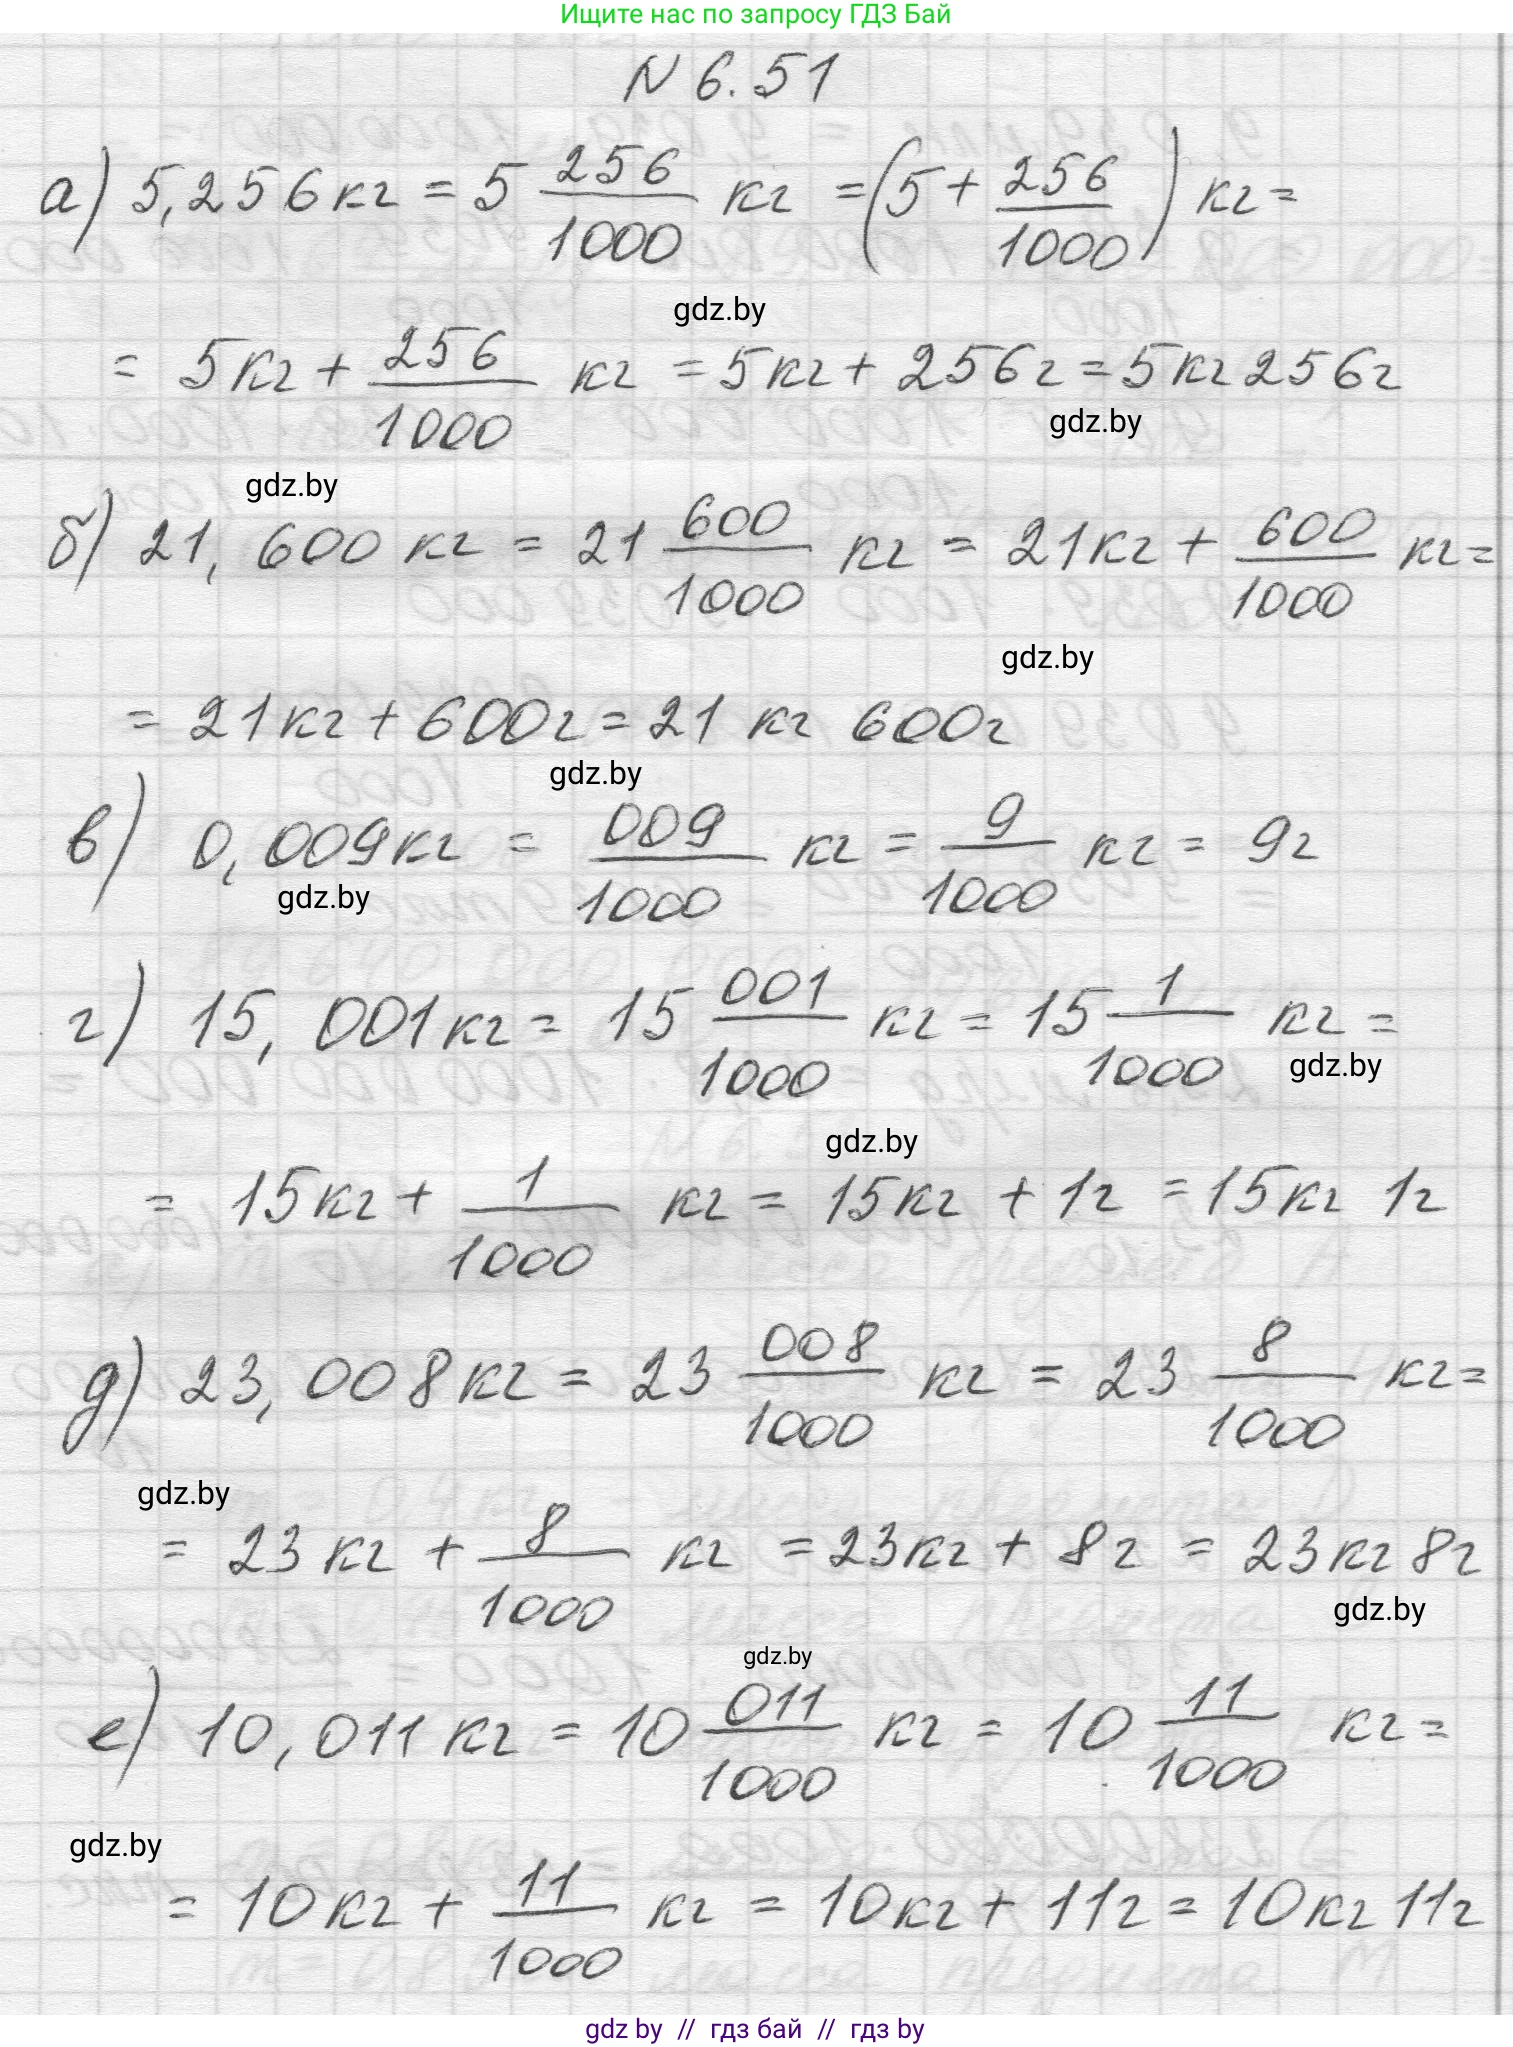 Ищите нас по запросу ГДЗ Бай
N 6.51
а) 5,256 кг = 5 256/1000 кг = (5 + 256/1000) кг =
gdz.by
= 5кг + 256/1000 кг = 5кг + 256г = 5кг 256г
gdz.by
gdz.by
б) 21,600 кг = 21 600/1000 кг = 21кг + 600/1000 кг =
gdz.by
= 21кг + 600г = 21 кг 600г
gdz.by
в) 0,009кг = 009/1000 кг = 9/1000 кг = 9г
gdz.by
г) 15,001кг = 15 001/1000 кг = 15 1/1000 кг =
gdz.by
gdz.by
= 15кг + 1/1000 кг = 15кг + 1г = 15кг 1г
д) 23,008кг = 23 008/1000 кг = 23 8/1000 кг =
gdz.by
= 23 кг + 8/1000 кг = 23кг + 8г = 23кг 8г
gdz.by
gdz.by
е) 10,011 кг = 10 011/1000 кг = 10 11/1000 кг =
gdz.by
= 10кг + 11/1000 кг = 10кг + 11г = 10кг 11г
gdz by // гдз бай // гдз by